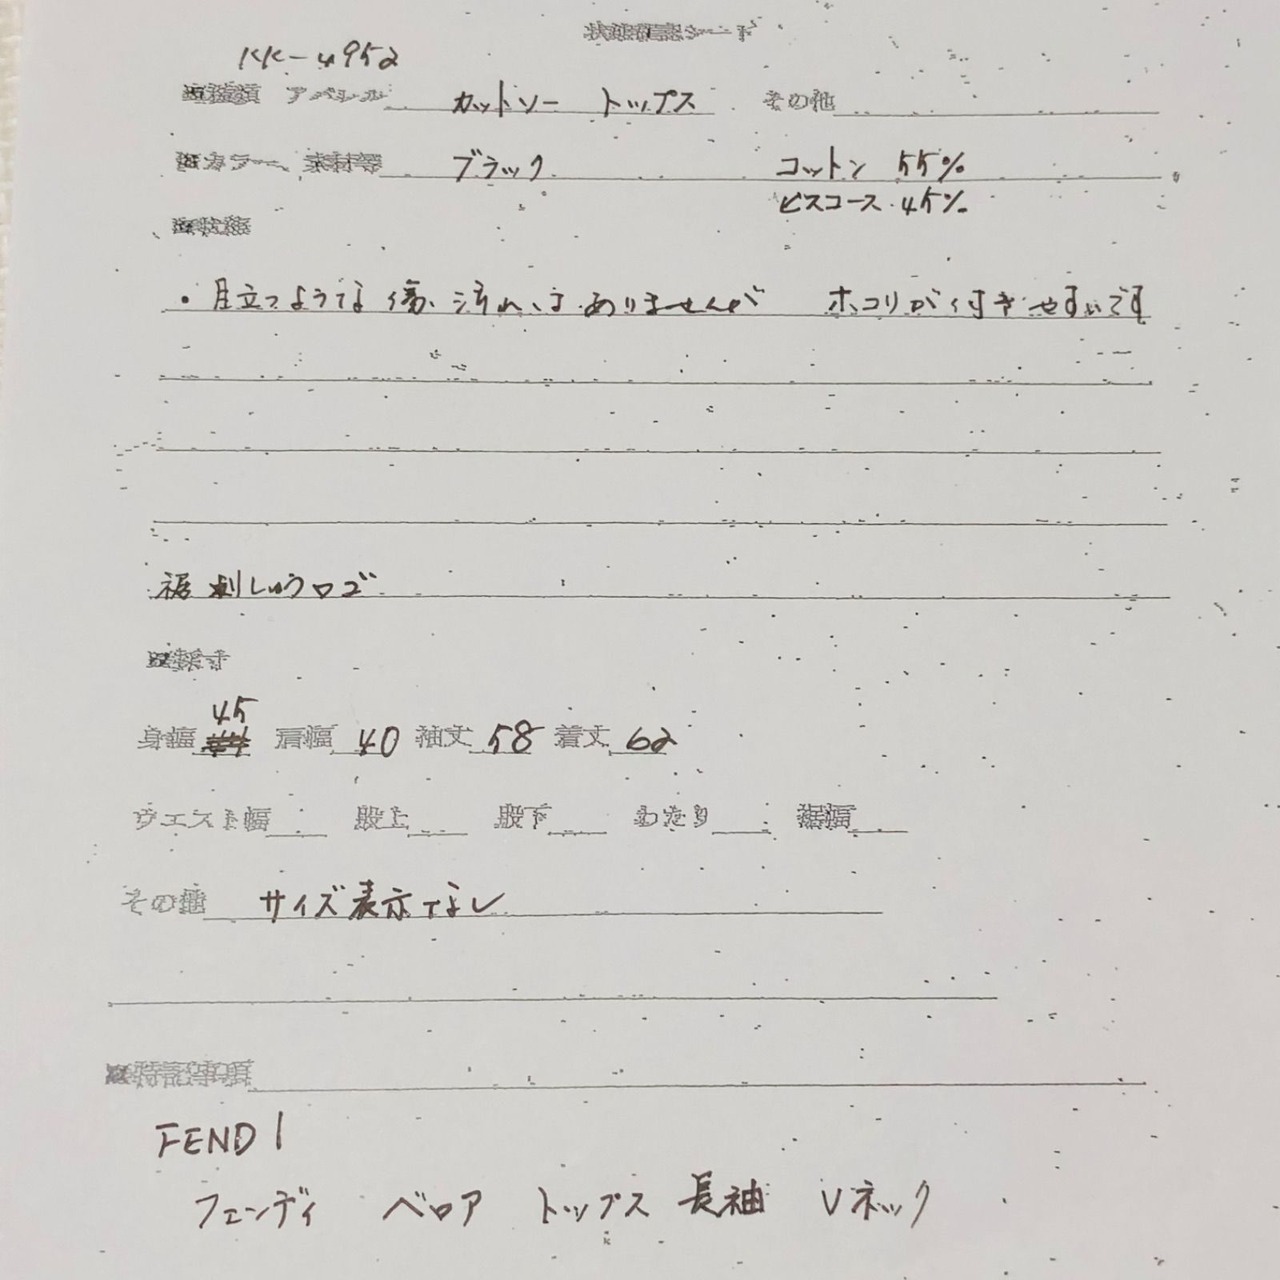 状態確認シート
KK-4952
■種類 アパレル カットソー トップス その他
■カラー、素材等 ブラック コットン 55%
ビスコース 45%
■状態
・目立つような傷、汚れはありませんが ホコリが付きやすいです
裾 刺しゅうロゴ
■採寸
45
身幅 肩幅 40 袖丈 58 着丈 62
ウエスト幅 股上 股下 わたり 裾幅
その他 サイズ表示なし
■特記事項
FENDI
フェンディ ベロア トップス 長袖 Vネック